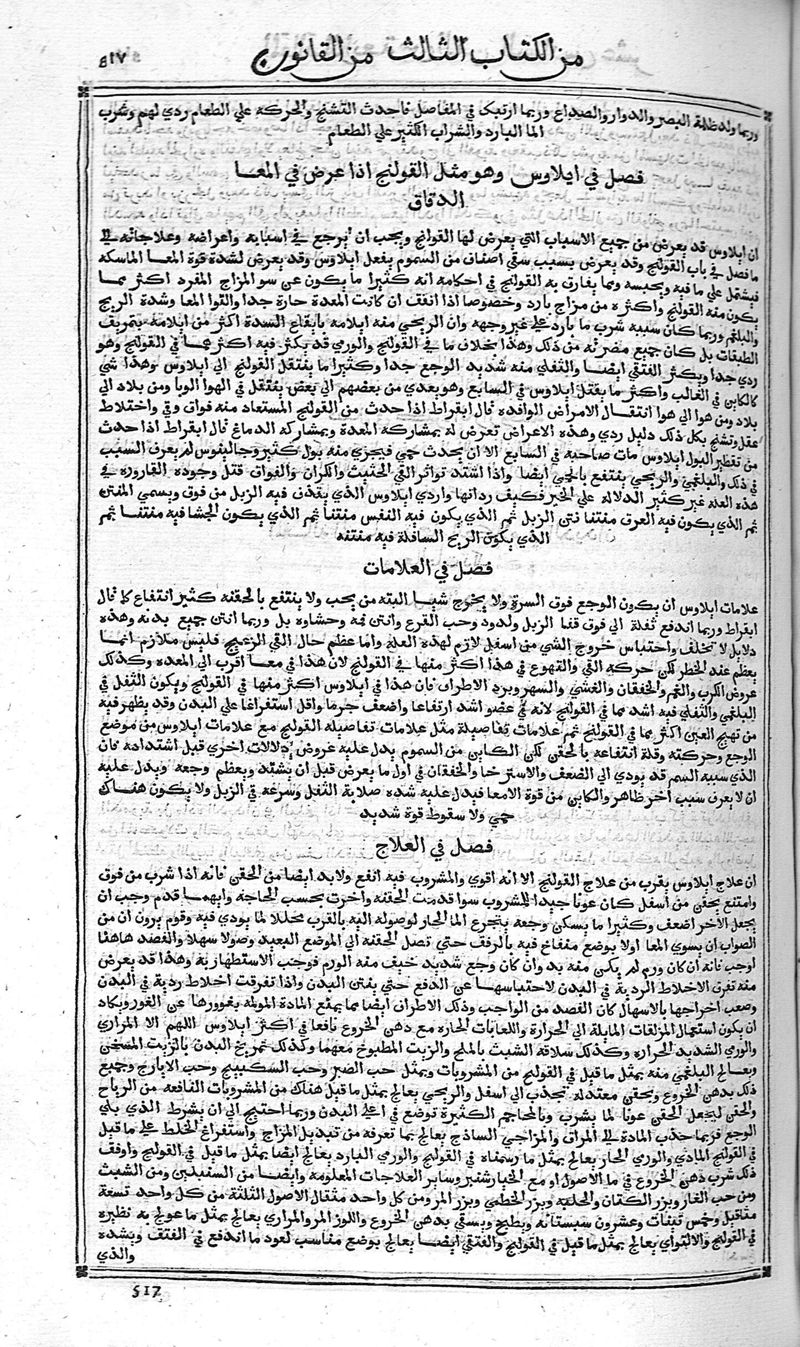 من الكتاب الثالث من القانون
٥١٧
وربما ولد ظلمة البصر والدوار والصداع وربما ارتبك في المفاصل فاحدث التشنج والحركة علي الطعام ردي لهم وشرب
الما البارد والشراب الكثير علي الطعام
فصل في ايلاوس وهو مثل القولنج اذا عرض في المعا
الدقاق
ان ايلاوس قد يعرض من جميع الاسباب التي يعرض لها القولنج ويجب ان يرجع في اسبابه واعراضه وعلاجاته الي
ما فصل في باب القولنج وقد يعرض بسبب سقي اصناف من السموم يفعل ايلاوس وقد يعرض لشدة قوة المعا الماسكه
فيشتمل علي ما فيه ويحبسه ومما يفارق به القولنج في احكامه انه كثيرا ما يكون عن سو المزاج المفرد اكثر مما
يكون منه القولنج واكثره من مزاج بارد وخصوصا اذا اتفق ان كانت المعدة حارة جدا والقوا المعا وشدة الريح
والبلغم وربما كان سببه شرب ما بارد علي غير وجهه وان الريحي منه ايلامه بايقاع السدة اكثر من ايلامه بتمزيف
الطبقات بل كان جميع مضرته من ذلك وهذا بخلاف ما في القولنج والورمي قد يكثر فيه اكثر مما في القولنج وهو
ردي جدا ويكثر الفتقي ايضا والثفلي منه شديد الوجع جدا وكثيرا ما ينتقل القولنج الي ايلاوس وهذا شي
كالكاين في الغالب واكثر ما يقتل ايلاوس في السابع وهو يعدي من بعضهم الي بعض ينتقل في الهوا الوبا ومن بلاد الي
بلاد ومن هوا الي هوا انتقال الامراض الوافده قال ابقراط اذا حدث من القولنج المستعاد منه فواق وقي واختلاط
عقل وتشنج بكل ذلك دليل ردي وهذه الاعراض تعرض له بمشاركة المعدة وبمشاركه الدماغ قال ابقراط اذا حدث
من تقطير البول ايلاوس مات صاحبه في السابع الا ان يحدث حمي فيجري منه بول كثير وجالينوس لم يعرف السبب
في ذلك والبلغمي والريحي ينتفع بالحمي ايضا واذا اشتد تواتر القي الحثيث والكزاز والفواق قتل وجوده القاروره في
هذه العله غير كثير الدلاله علي الخير فكيف ردائها واردي ايلاوس الذي يقذف فيه الزبل من فوق ويسمي المنتن
ثم الذي يكون فيه العرق منتنا نتن الزبل ثم الذي يكون فيه النفس منتنا ثم الذي يكون الجشا فيه منتنا ثم
الذي يكون الريح السافلة فيه منتنه
فصل في العلامات
علامات ايلاوس ان يكون الوجع فوق السرة ولا يخرج شيا البته من يحب ولا ينتفع بالحقنه كثير انتفاع كما قال
ابقراط وربما اندفع ثفلة الي فوق قفا الزبل ولدود وحب القرع وانتن فمه وحشاوه بل وربما انتن جميع بدنه وهذه
دلايل لا تخلف واحتباس خروج الشي من اسفل لازم لهذه العله واما عظم حال القي الزعيج فليس ملازم انما
يعظم عند الخطر لكن حركة القي والتهوع في هذا اكثر منها في القولنج لان هذا في معا اقرب الي المعده وكذلك
عروض الكرب والغم والخفقان والغشي والسهر وبرد الاطراف فان هذا في ايلاوس اكثر منها في القولنج ويكون الثفل في
البلغمي والثفلي فيه اشد مما في القولنج لانه في عضو اشد ارتفاعا واضعف جرما واقل استفراغا علي البدن وقد يظهر فيه
من تهيج العين اكثر مما في القولنج ثم علامات تفاصيله مثل علامات تفاصيله القولنج مع علامات ايلاوس من موضع
الوجع وحركته وقلة انتفاعه بالحقن لكن الكاين من السموم يدل عليه عروض دلالات اخري قبل اشتداده فان
الذي سببه السم قد يودي الي الضعف والاسترخا والخفقان في اول ما يعرض قبل ان يشتد ويعظم وجعه ويدل عليه
ان لا يعرف سبب اخر ظاهر والكاين من قوة الامعا فيدل عليه شده صلابة الثفل وسرعه في الزبل ولا يكون هناك
حمي ولا سقوط قوة شديد
فصل في العلاج
ان علاج ايلاوس يقرب من علاج القولنج الا انه اقوي والمشروب فيه انفع ولابد ايضا من الحقن فانه اذا شرب من فوق
وامتنع بحقن من اسفل كان عونا جيدا للمشروب سوا قدمت الحقنه واخرت بحسب الحاجة وايهما قدم وجب ان
يجعل الاخر اضعف وكثيرا ما يسكن وجعه بتجرع الما الحار لوصوله اليه بالقرب محللا لما يودي فيه وقوم يرون ان من
الصواب ان يسوي المعا اولا بوضع منفاخ فيه بالرفق حتي تصل الحقنه الي الموضع البعيد وصولا سهلا والفصد هاهنا
اوجب فانه ان كان ورم لم يكن منه بد وان كان وجع شديد خيف منه الورم فوجب الاستظهار به وهذا قد يعرض
منه تفرق الاخلاط الردية في البدن لاحتباسها عن الدفع حتي ينتن البدن واذا تفرقت اخلاط ردية في البدن
وصعب اخراجها بالاسهال كان الفصد من الواجب وذلك الاطراف ايضا مما يمنع المادة المولمه بغوورها عن الغور ويكاد
ان يكون استعمال المزلقات المايلة الي الحرارة واللعابات الحاره مع دهن الخروع نافعا في اكثر ايلاوس اللهم الا المراري
والوري الشديد الحراره وكذلك سلاقة الشبث بالملح والزيت المطبوخ معهما وكذلك تمريخ البدن بالزيت المسخن
ويعالج البلغمي منه بمثل ما قيل في القولنج من المشروبات وبمثل حب الصبر وحب السكبينج وحب الايارج وجميع
ذلك بدهن الخروع وبحقن معتدله يجذب الي اسفل والريحي يعالج بمثل ما قيل هناك من المشروبات النافعه من الرياح
والحقن ليجعل الحقن عونا لما يشرب وبالمحاجم الكثيرة توضع في اعلي البدن وربما احتيج الي ان يشرط الذي يلي
الوجع فربما جذب المادة الي المراق والمزاجي الساذج يعالج بما تعرفه من تبديل المزاج واستفراغ الخلط علي ما قيل
في القولنج المادي والورمي الحار يعالج بمثل ما رسمناه في القولنج والورمي البارد يعالج ايضا بمثل ما قيل في القولنج واوفق
ذلك شرب دهن الخروع في ما الاصول او مع الخيارشنبر وساير العلاجات المعلومه وايضا من السفيدين ومن الشبث
ومن حب الغار وبزر الكتان والحلبه وبزر الخطمي وبزر المر ومن كل واحد مثقال الاصول الثلثة من كل واحد تسعة
مثاقيل وخمس تينات وعشرون سبستانه ويطبخ ويسقي بدهن الخروع واللوز المر والمراري يعالج بمثل ما عولج به نظيره
في القولنج والالتواي يعالج بمثل ما قيل في القولنج والفتقي ايضا يعالج بوضع مناسب لعود ما اندفع في الفتق ويشده
والذي
517